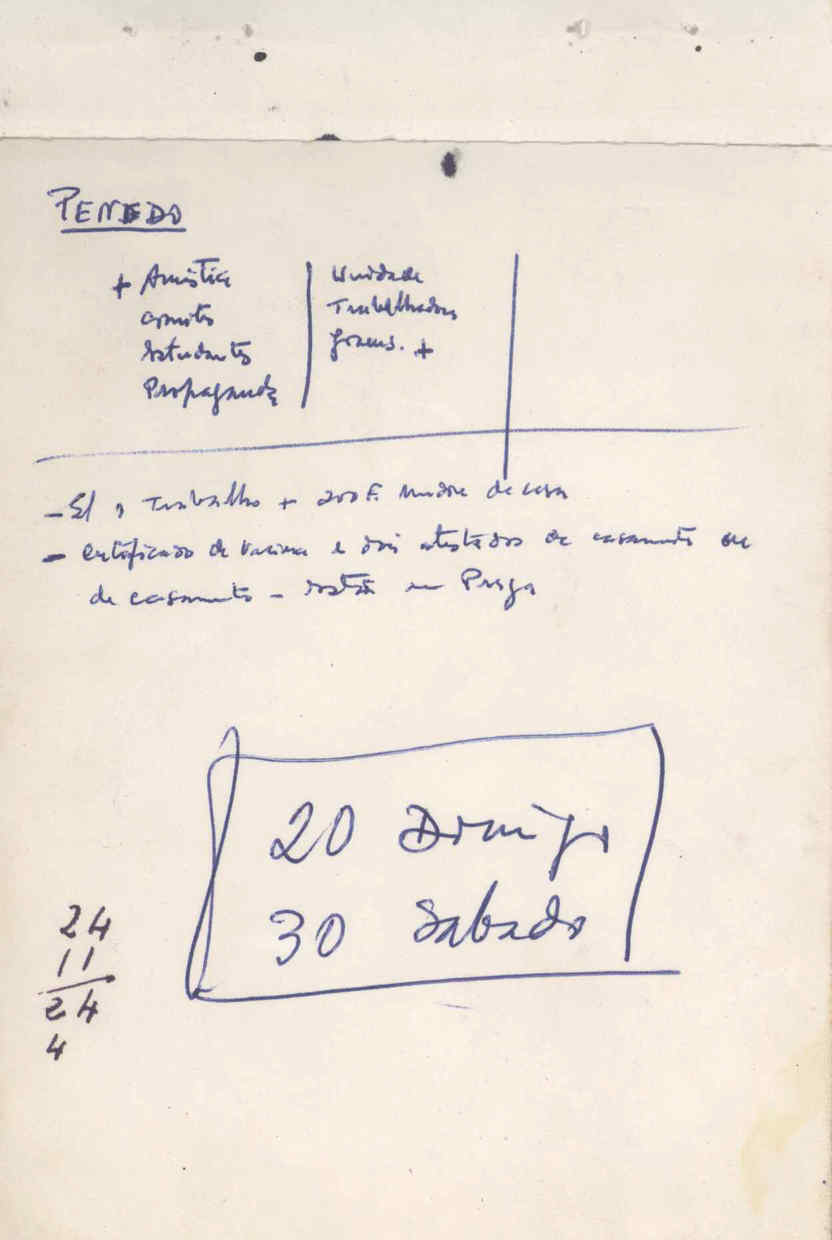 PENEDO
+ Amnistia
Comités
Estudantes
Propaganda
Unidade
Trabalhadores
Jovens. +
- Trabalho + 200 F. de casa
- Certificado de Vacina e dois atestados de casamento ou
de casamento - estão em Praga
20 Domingo
30 Sabado
24
11
24
4